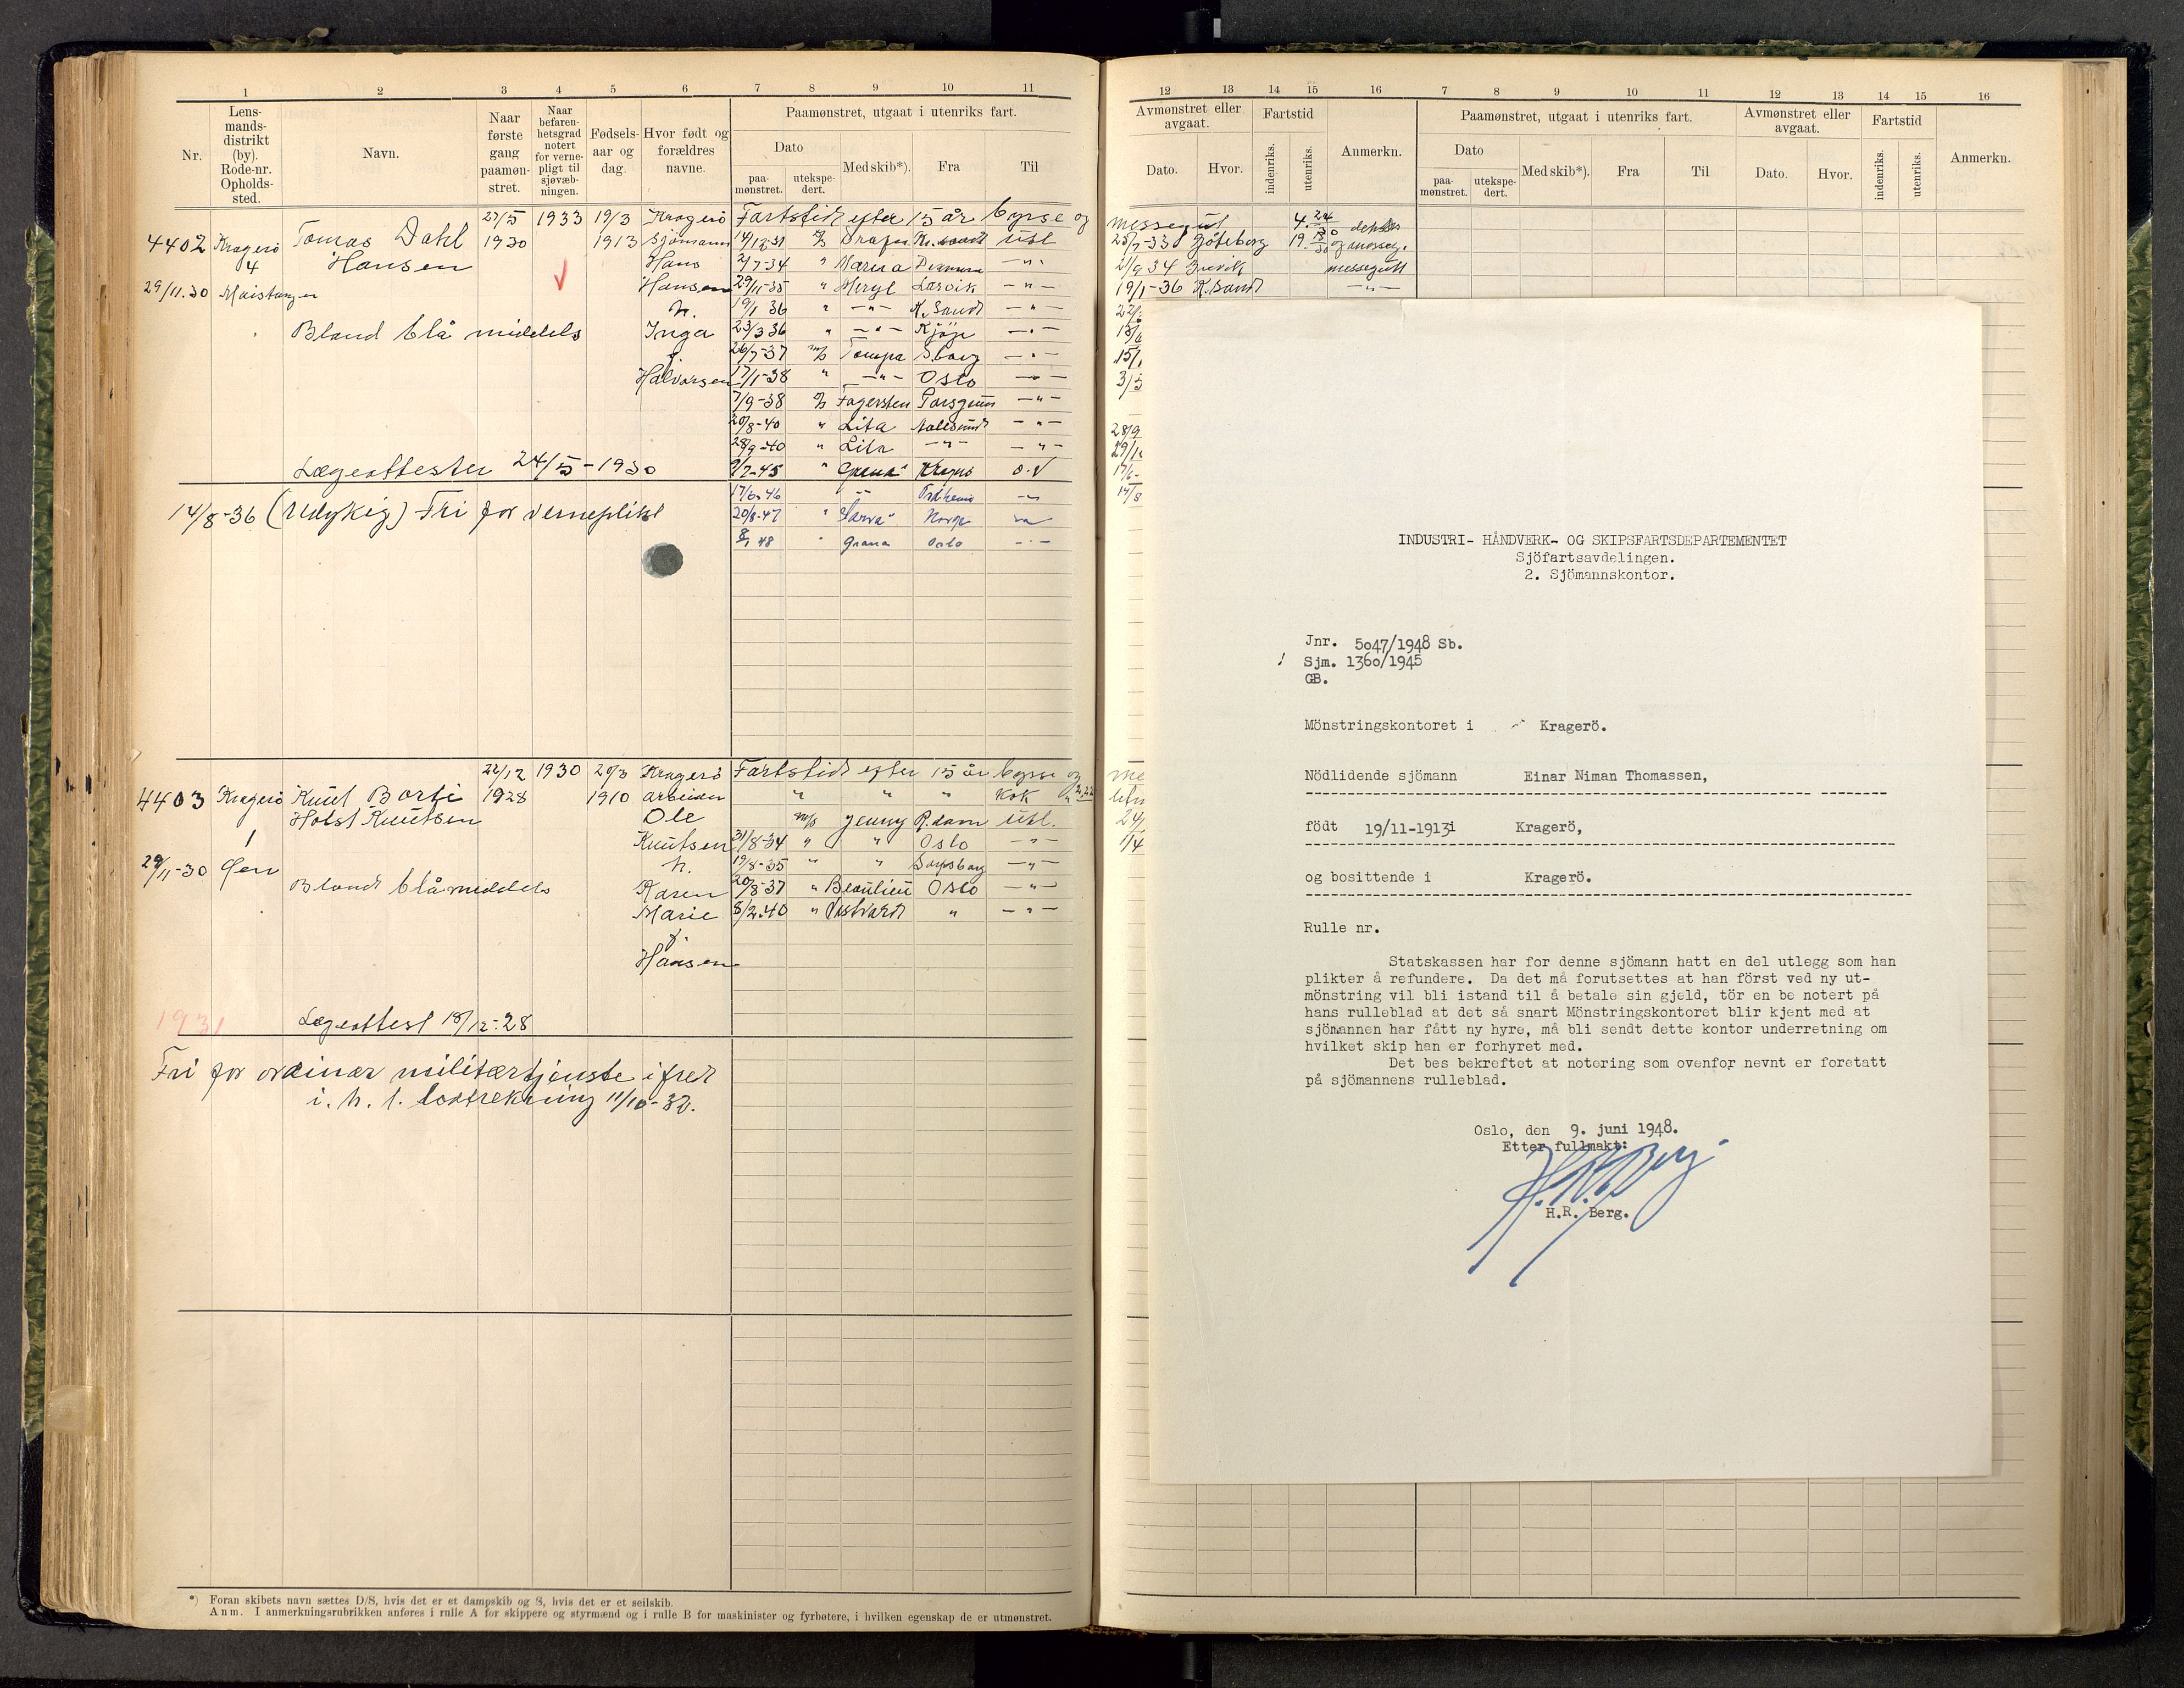 1 2 3 4 5 6 7 8 9 10 11
Nr.
Lens-
mands-
distrikt
(by).
Rode-nr.
Opholds-
sted.
Navn.
Naar
første
gang
paamøn-
stret.
Naar
befaren-
hetsgrad
notert
for verne-
pligt til
sjøvæb-
ningen.
Fødsels-
aar og
dag.
Hvor født og
forældres
navne.
Paamønstret, utgaat i utenriks fart.
Dato
paa-
mønstret.
utekspe-
dert.
Med skib*).
Fra
Til
27/5 1933 19/3 Kragerö Fartstid efter 15 år byrse og
4402 Kragerö Tomas Dahl 1930 1913 Sjömann
4 Hansen Hans 2/7-34 " Marna
29/11.30 Hansen 29/11-35 " Meryl Larvik —"—
h. 19/1 36 " —"— K. Sand —"—
Bland blå middels Inga 23/3 36 " —"— Kjöge —"—
g. 26/7-37 m/s Tompa S.borg —"—
Halvorsen 17/1-38 " —"— Oslo —"—
7/9-38 Fagersten Porsgrun —"—
20/8-40 " Lita Aalesund —"—
28/9-40 " Lita —"— —"—
Lægeattester 24/5-1930 9/7-45 " Kragerö
17/6-46
14/8-36 Fri for verneplikt 20/8-47 Norge
48 Grana Oslo
22/12 1930 20/3 Kragerö Fartstid efter 15 år byrse og
4403 Kragerö Knut Borti 1928 1910 arbeider " " " Kok
Holst Knutsen Ole m/s Jenny R.dam Utl.
1 Knutsen 31/8-34 " " Oslo —"—
29/11-30 h. 19/8-35 " " Sarpsborg —"—
Blond blå middels Karen 20/8-37 " Beaulieu Oslo —"—
Marie 8/2-40 " Vestvard " —"—
Hansen
1931 Lægeattest 18/12-28
Fri for ordinær militærtjeneste i fred
i. h. t. lodtrekning 11/10-32.
*) Foran skibets navn sættes D/S, hvis det er et dampskib og S, hvis det er et seilskib.
Anm. I anmerkningsrubrikken anføres i rulle A for skippere og styrmænd og i rulle B for maskinister og fyrbøtere, i hvilken egenskap de er utmønstret.
12 13 14 15 16 7 8 9 10 11 12 13 14 15 16
Avmønstret eller
avgaat.
Dato.
Hvor.
Fartstid
indenriks.
utenriks.
Anmerkn.
Paamønstret, utgaat i utenriks fart.
Dato
paa-
mønstret.
utekspe-
dert.
Med skib*).
Fra
Til
Avmønstret eller
avgaat.
Dato.
Hvor.
Fartstid
indenriks.
utenriks.
Anmerkn.
messegut
25/7-33 Göteborg
2/9 34 Brevik messegutt
19/1-36 K.Sand —"—
28/9
INDUSTRI- HÅNDVERK- OG SKIPSFARTSDEPARTEMENTET
Sjöfartsavdelingen.
2. Sjömannskontor.
Jnr. 5047/1948 Sb.
Sjm. 1360/1945
GB.
Mönstringskontoret i Kragerö.
Nödlidende sjömann Einar Niman Thomassen,
födt 19/11-1913i Kragerö,
og bosittende i Kragerö.
Rulle nr.
Statskassen har for denne sjömann hatt en del utlegg som han
plikter å refundere. Da det må forutsettes at han först ved ny ut-
mönstring vil bli istand til å betale sin gjeld, tör en be notert på
hans rulleblad at det så snart Mönstringskontoret blir kjent med at
sjömannen har fått ny hyre, må bli sendt dette kontor underretning om
hvilket skip han er forhyret med.
Det bes bekreftet at notering som ovenfor nevnt er foretatt
på sjömannens rulleblad.
Oslo, den 9. juni 1948.
Etter fullmakt:
H.R. Berg
H.R. Berg.